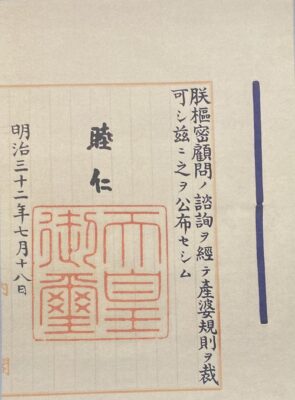 朕樞密顧問ノ諮詢ヲ經テ產婆規則ヲ裁
可シ茲ニ之ヲ公布セシム
睦仁
天皇
御璽
明治三十二年七月十八日